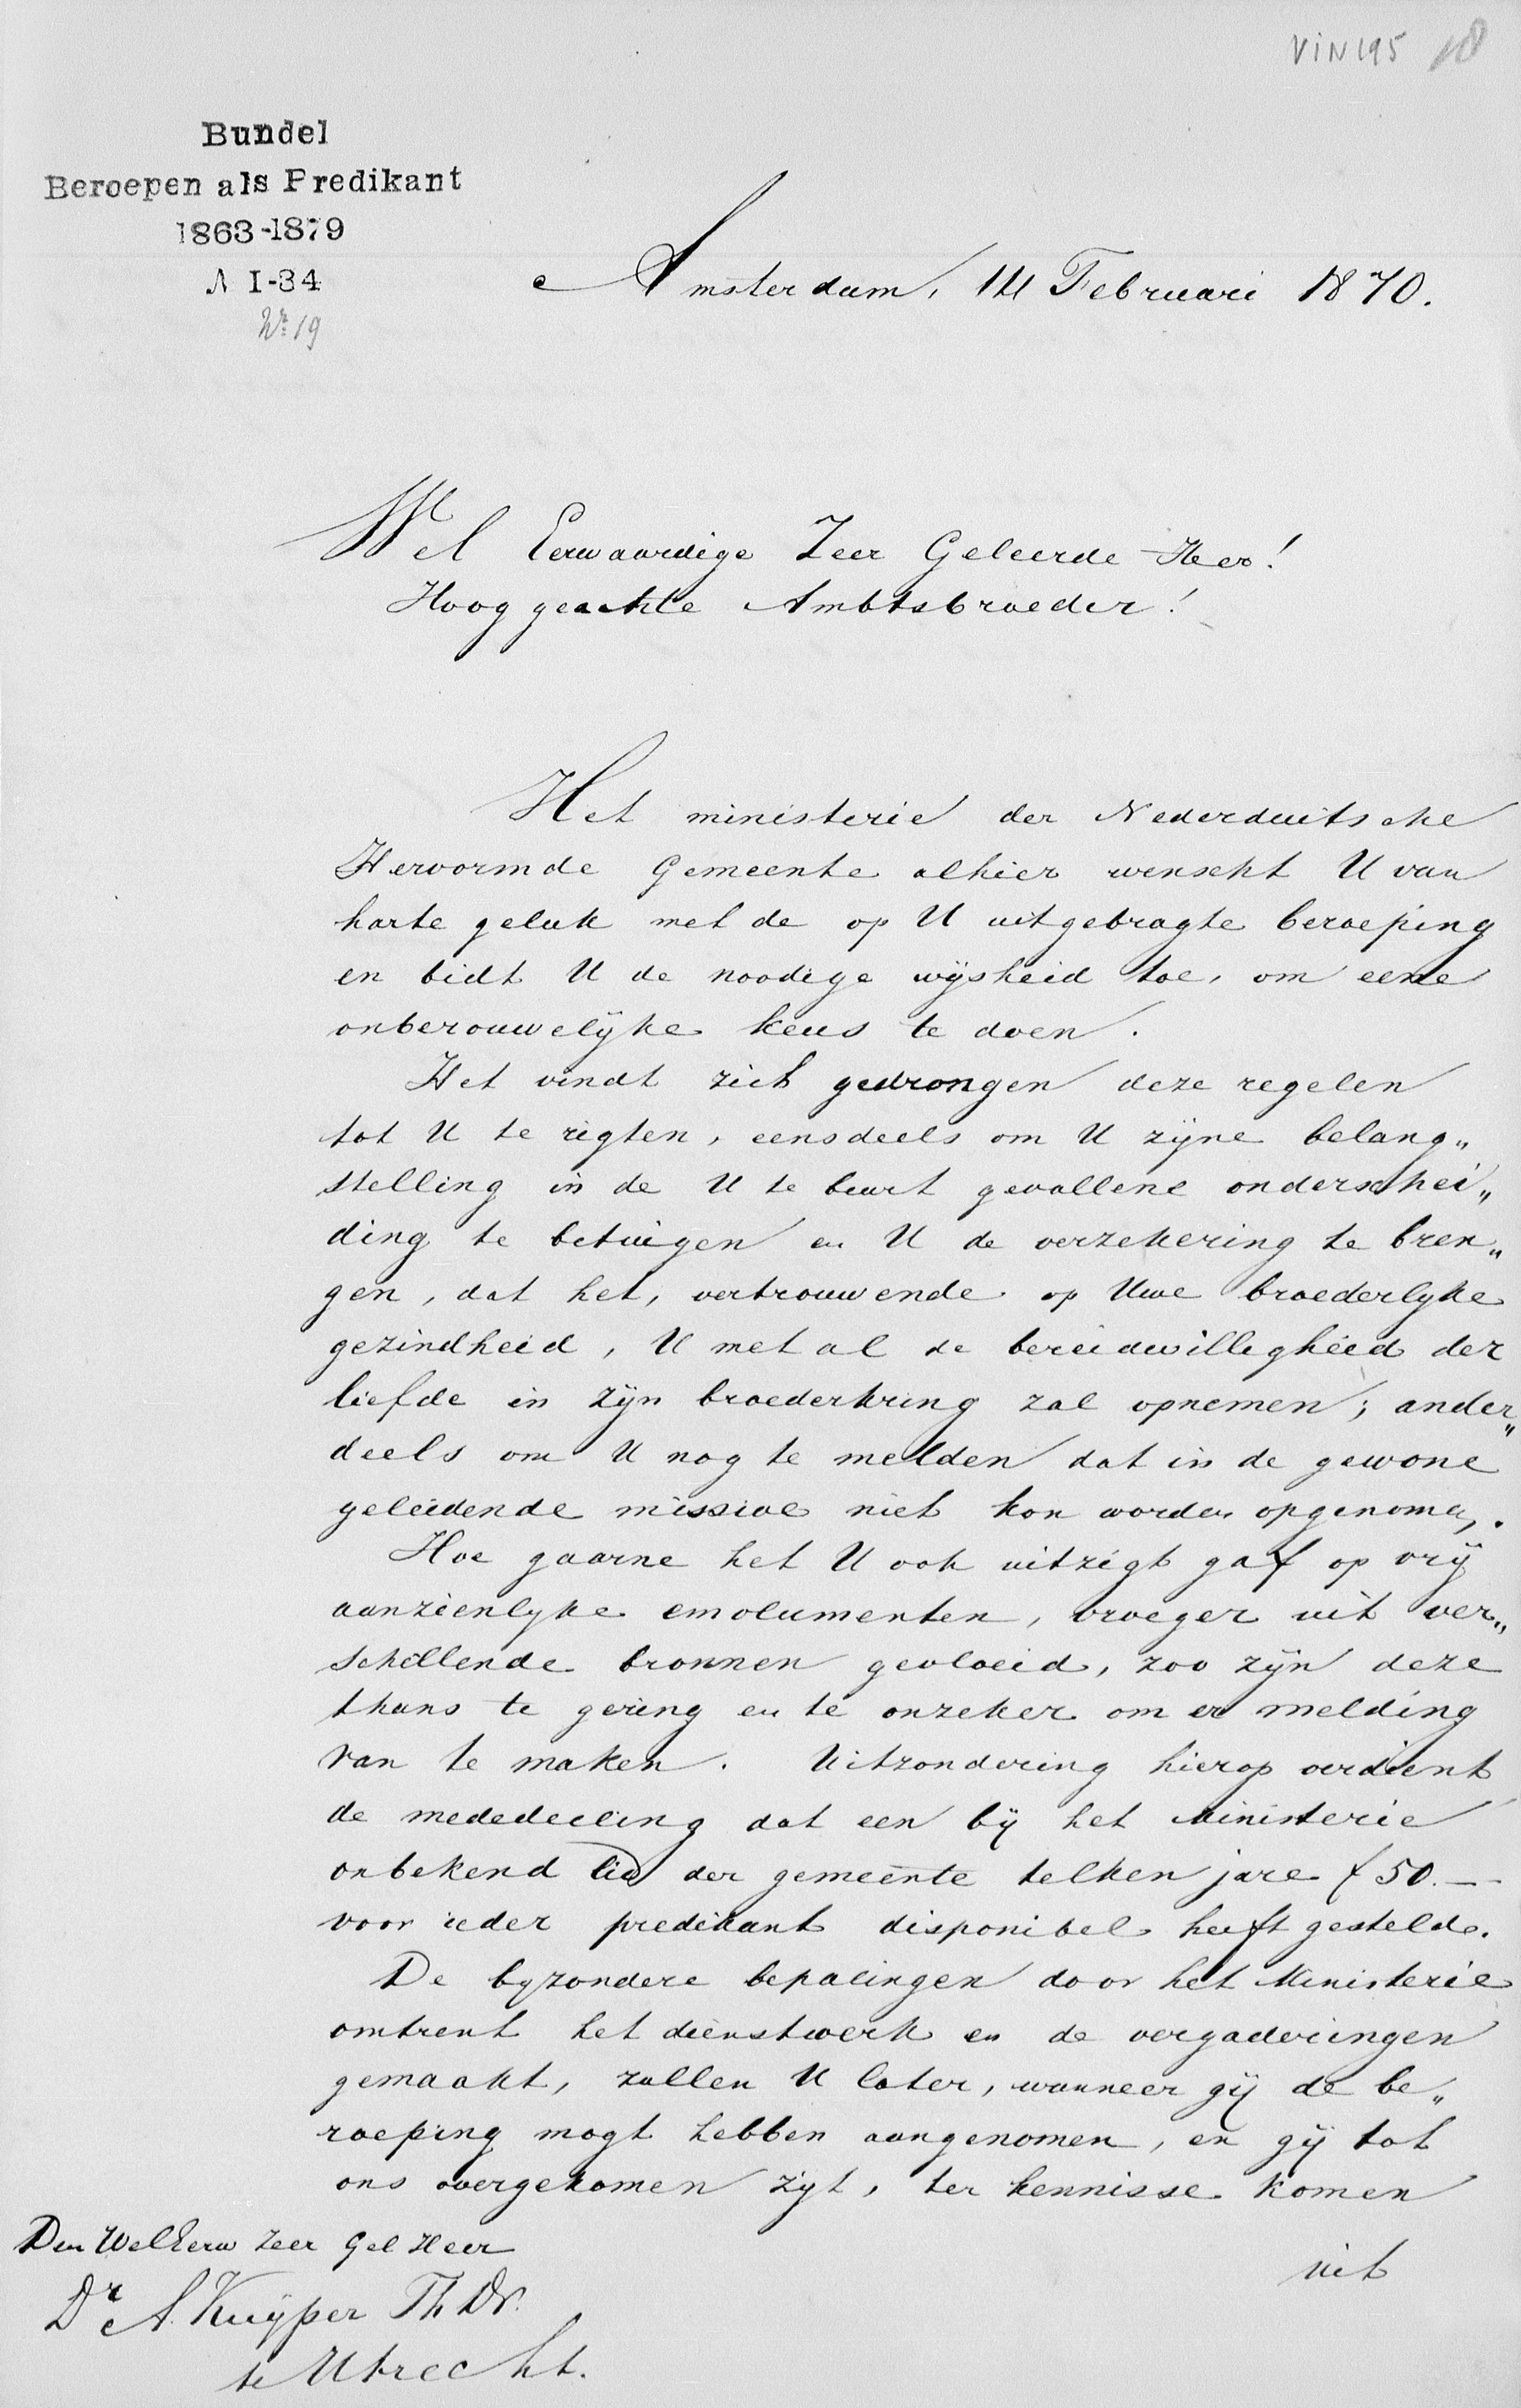 VIN195 18
Bundel
Beroepen als Predikant
1863-1879
A I-34
Nr. 19
Amsterdam, 14 Februari 1870.
Wel Eerwaardige Zeer Geleerde Heer!
Hooggeachte Ambtsbroeder!
Het ministerie der Nederduitsche
Hervormde Gemeente alhier wenscht U van
harte geluk met de op U uitgebragte beroeping
en bidt U de noodige wijsheid toe, om eene
onberouwelijke keus te doen.
Het vindt zich gedrongen deze regelen
tot U te rigten, eensdeels om U zijne belang„
stelling in de U te beurt gevallene onderschei„
ding te betuigen en U de verzekering te bren„
gen, dat het, vertrouwende op Uwe broederlyke
gezindheid, U met al de bereidwilligheid der
liefde in zijn broederkring zal opnemen; ander„
deels om U nog te melden dat in de gewone
geleidende missive niet kon worden opgenomen.
Hoe gaarne het U ook uitzigt gaf op vrij
aanzienlyke emolumenten, vroeger uit ver„
schillende bronnen gevloeid, zoo zijn deze
thans te gering en te onzeker om er melding
van te maken. Uitzondering hierop verdient
de mededeeling dat een bij het Ministerie
onbekend lid der gemeente telken jare f 50.—
voor ieder predikant disponibel heeft gesteld.
De byzondere bepalingen door het Ministerie
omtrent het dienstwerk en de vergaderingen
gemaakt, zullen U later, wanneer gij de be„
roeping mogt hebben aangenomen, en gij tot
ons overgekomen zijt, ter kennisse komen
uit
Den WelEerw Zeer Gel Heer
Dr A. Kuijper Th Dr.
te Utrecht.